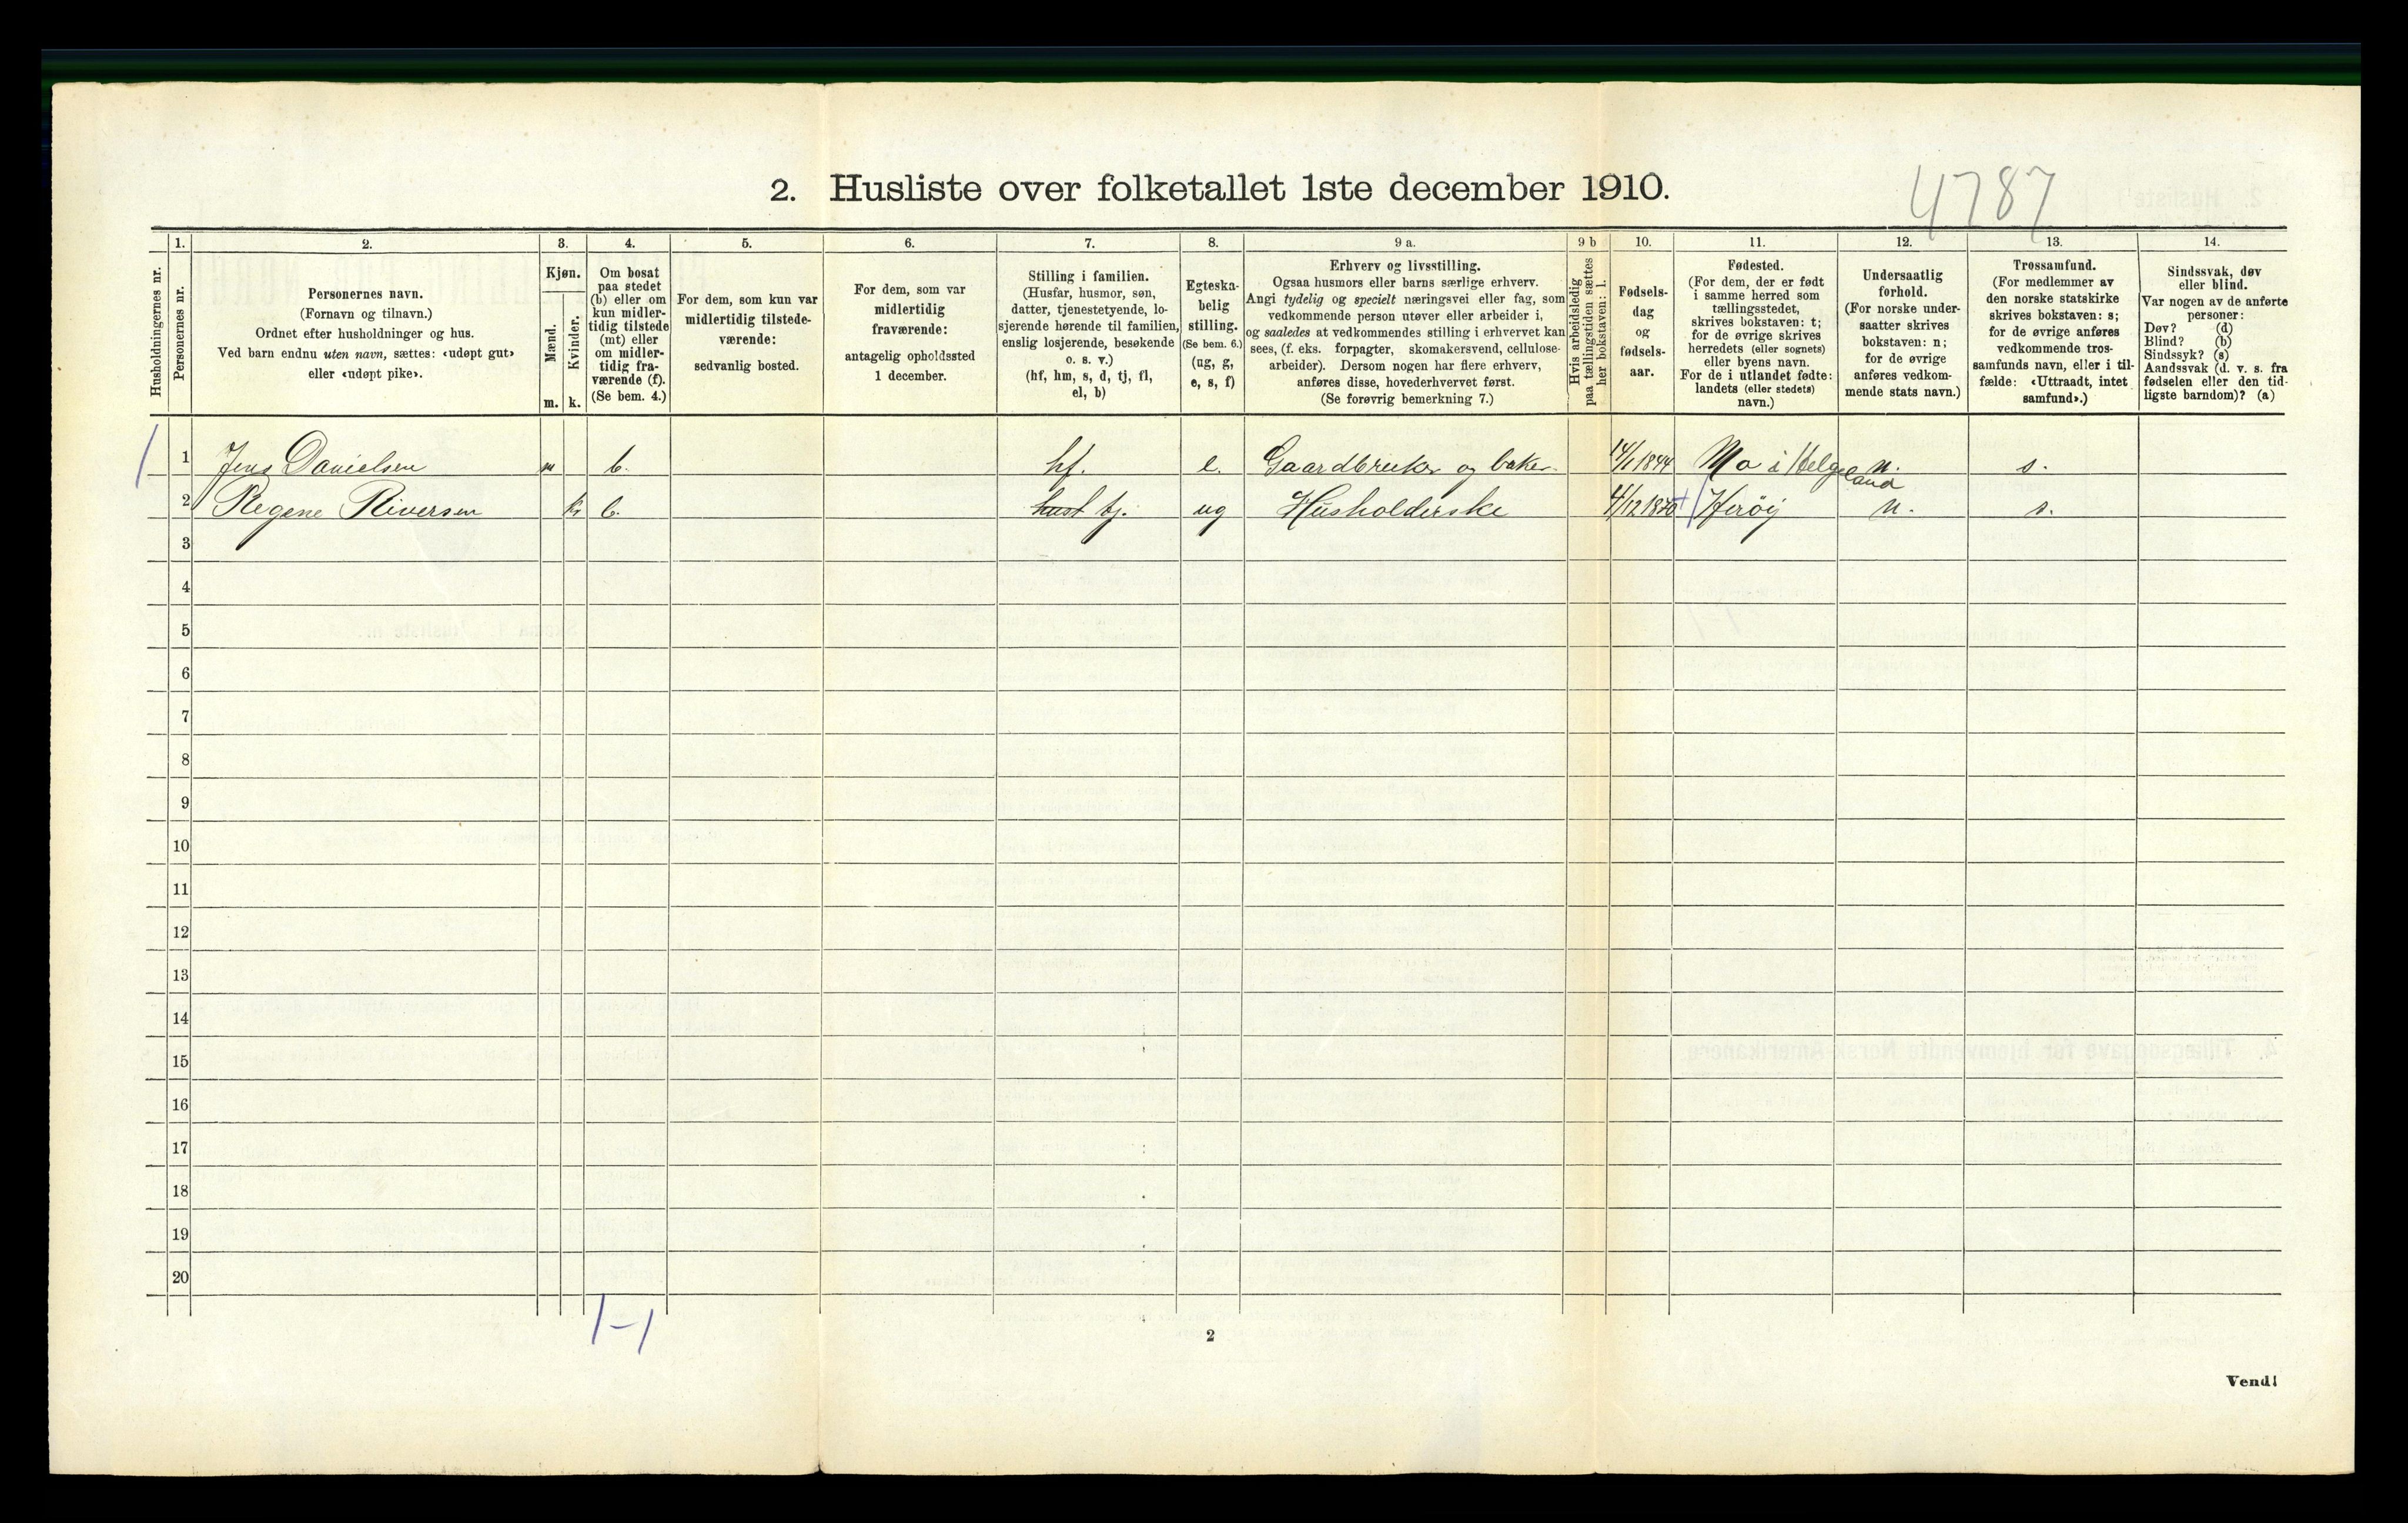 4787
2. Husliste over folketallet 1ste december 1910.
Husholdningernes nr.
1.
Personernes nr.
2.
Personernes navn.
(Fornavn og tilnavn.)
Ordnet efter husholdninger og hus.
Ved barn endnu uten navn, sættes: «udøpt gut»
eller «udøpt pike».
3.
Kjøn.
Mænd.
m.
Kvinder.
k.
4.
Om bosat
paa stedet
(b) eller om
kun midler-
tidig tilstede
(mt) eller
om midler-
tidig fra-
værende (f).
(Se bem. 4.)
5.
For dem, som kun var
midlertidig tilstede-
værende:
sedvanlig bosted.
6.
For dem, som var
midlertidig
fraværende:
antagelig opholdssted
1 december.
7.
Stilling i familien.
(Husfar, husmor, søn,
datter, tjenestetyende, lo-
sjerende hørende til familien,
enslig losjerende, besøkende
o. s. v.)
(hf, hm, s, d, tj, fl,
el, b)
8.
Egteska-
belig
stilling.
(Se bem. 6.)
(ug, g,
e, s, f)
9 a.
Erhverv og livsstilling.
Ogsaa husmors eller barns særlige erhverv.
Angi tydelig og specielt næringsvei eller fag, som
vedkommende person utøver eller arbeider i,
og saaledes at vedkommendes stilling i erhvervet kan
sees, (f. eks. forpagter, skomakersvend, cellulose-
arbeider). Dersom nogen har flere erhverv,
anføres disse, hovederhvervet først.
(Se forøvrig bemerkning 7.)
9 b
Hvis arbeidsledig
paa tællingstiden sættes
her bokstaven: l.
10.
Fødsels-
dag
og
fødsels-
aar.
11.
Fødested.
(For dem, der er født
i samme herred som
tællingsstedet,
skrives bokstaven: t;
for de øvrige skrives
herredets (eller sognets)
eller byens navn.
For de i utlandet fødte:
landets (eller stedets)
navn.)
12.
Undersaatlig
forhold.
(For norske under-
saatter skrives
bokstaven: n;
for de øvrige
anføres vedkom-
mende stats navn.)
13.
Trossamfund.
(For medlemmer av
den norske statskirke
skrives bokstaven: s;
for de øvrige anføres
vedkommende tros-
samfunds navn, eller i til-
fælde: «Uttraadt, intet
samfund».)
14.
Sindssvak, døv
eller blind.
Var nogen av de anførte
personer:
Døv? (d)
Blind? (b)
Sindssyk? (s)
Aandssvak (d. v. s. fra
fødselen eller den tid-
ligste barndom)? (a)
1 Jens Danielsen m b. hf. e. Gaardbruker og baker 14/1 1844 Mo i Helgeland n. s.
2 Regene Riversen k b. hust tj. ug Husholderske 4/12 1870 Herøy n. s.
3
4
5
6
7
8
9
10
11
12
13
14
15
16
17
18
19
20
1-1
2
Vend!